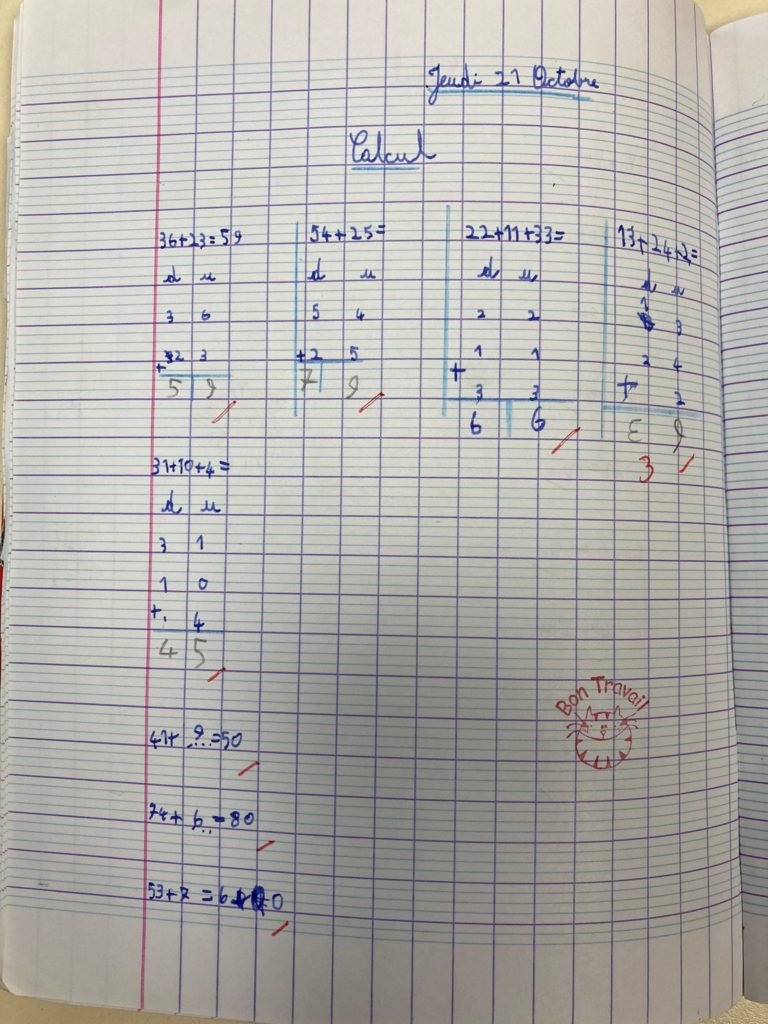 Jeudi 21 Octobre
Calcul
36+23=59
d u
3 6
+23
5 9
54+25=
d u
5 4
+2 5
7 9
22+11+33=
d u
2 2
1 1
+
3 3
6 6
13+24+2=
d u
1 3
2 4
+ 2
3 9
3
31+10+4=
d u
3 1
1 0
+. 4
4 5
41+ 9...=50
74+ 6..=80
53+7 =60
Bon Travail